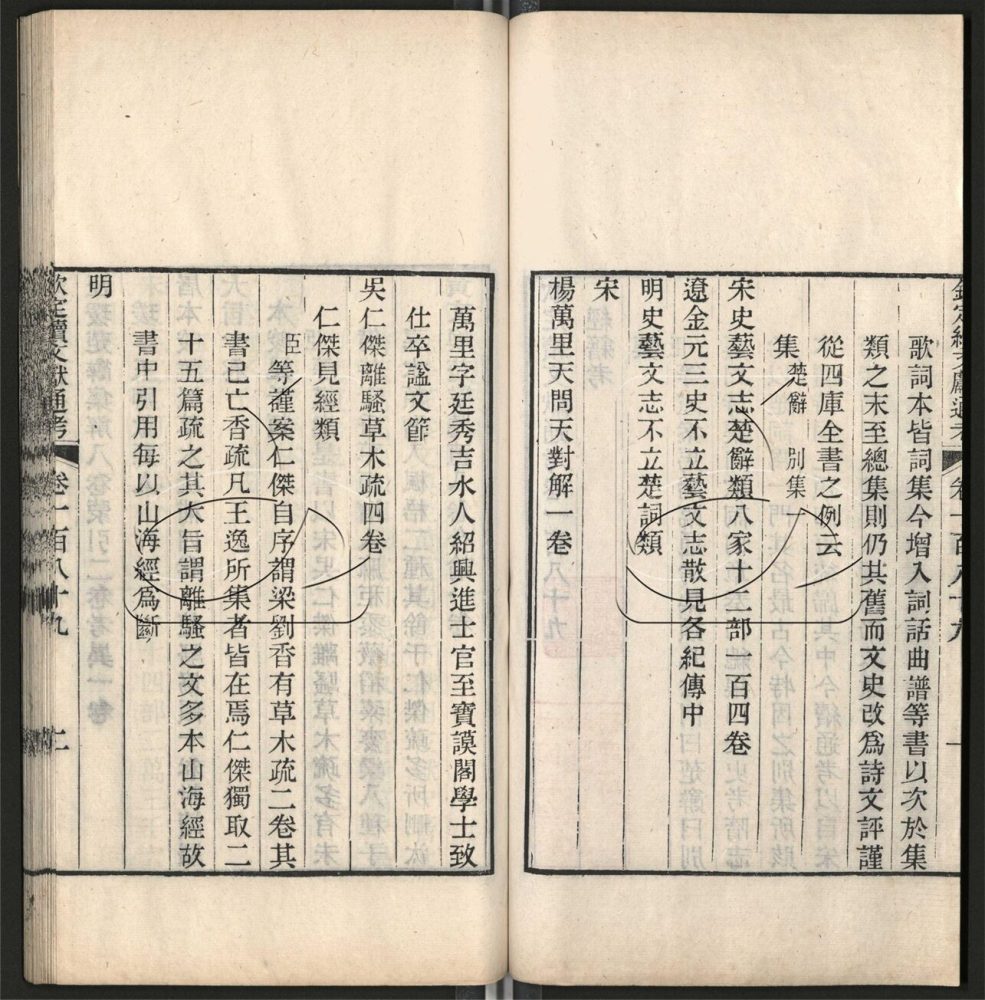 歌詞本皆詞集今增入詞話曲譜等書以次於集
類之末至總集則仍其舊而文史改爲詩文評謹
從四庫全書之例云
集 楚辭 別集
宋史藝文志楚辭類八家十二部一百四卷
遼金元三史不立藝文志散見各紀傳中
明史藝文志不立楚詞類
宋
楊萬里天問天對解一卷
萬里字廷秀吉水人紹興進士官至寶謨閣學士致
仕卒諡文節
吳仁傑離騷草木疏四卷
仁傑見經類
臣等謹案仁傑自序謂梁劉杳有草木疏二卷其
書已亡杳疏凡王逸所集者皆在焉仁傑獨取二
十五篇疏之其大旨謂離騷之文多本山海經故
書中引用每以山海經爲斷
明
欽定續文獻通考 卷一百八十九